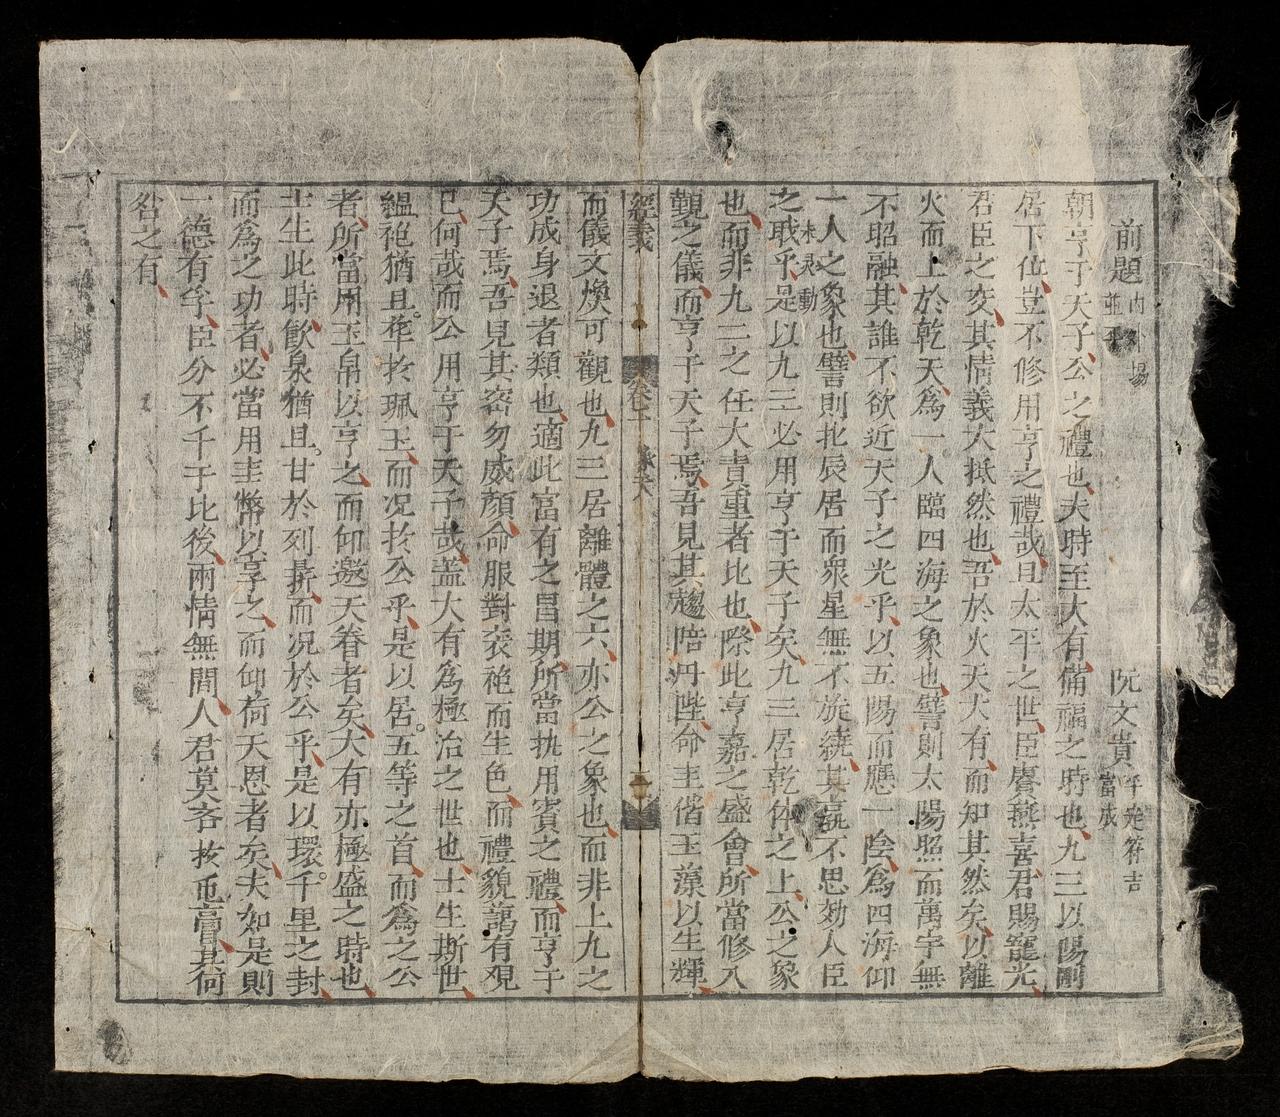 前題 內外場 並平 阮文貴 平定符吉 當成
朝亨于天子公之禮也夫時至大有備福之時也九三以陽剛
居下位豈不修用亨之禮哉且太平之世臣賡燕喜君賜寵光
君臣之交其情義大抵然也吾於火天大有而知其然矣以離
火而上於乾天爲一人臨四海之象也譬則太陽照而萬宇無
不昭融其誰不欲近天子之光乎以五陽而懸一陰爲四海仰
一人之象也譬則北辰居而眾星無不旋繞其孰不思効人臣
之耿乎是以九三必用亨于天子矣九三居乾体之上公之象
未足動
也而非九二之任大責重者比也際此亨嘉之盛會所當修入
覲之儀而亨于天子焉吾見其趨陪丹陛命圭偕玉藻以生輝
經義 卷二
而儀文煥可觀也九三居離體之六亦公之象也而非上九之
功成身退者類也適此富有之昌期所當执用賓之禮而亨于
天子焉吾見其密勿威顏命服對袞袍而生色而禮貌藹有覌
已何哉而公用亨于天子哉盖大有爲極治之世也士生斯世
縕袍猶且牽扵珮玉而况扵公乎是以居五等之首而爲之公
者所當用玉帛以亨之而仰邀天眷者矣大有亦極盛之時也
士生此時飲泉猶且甘於列鼎而况於公乎是以環千里之封
而爲之功者必當用圭幣以亨之而仰荷天恩者矣夫如是則
一德有孚臣分不千于比後兩情無間人君莫吝扵屯膏其何
咎之有